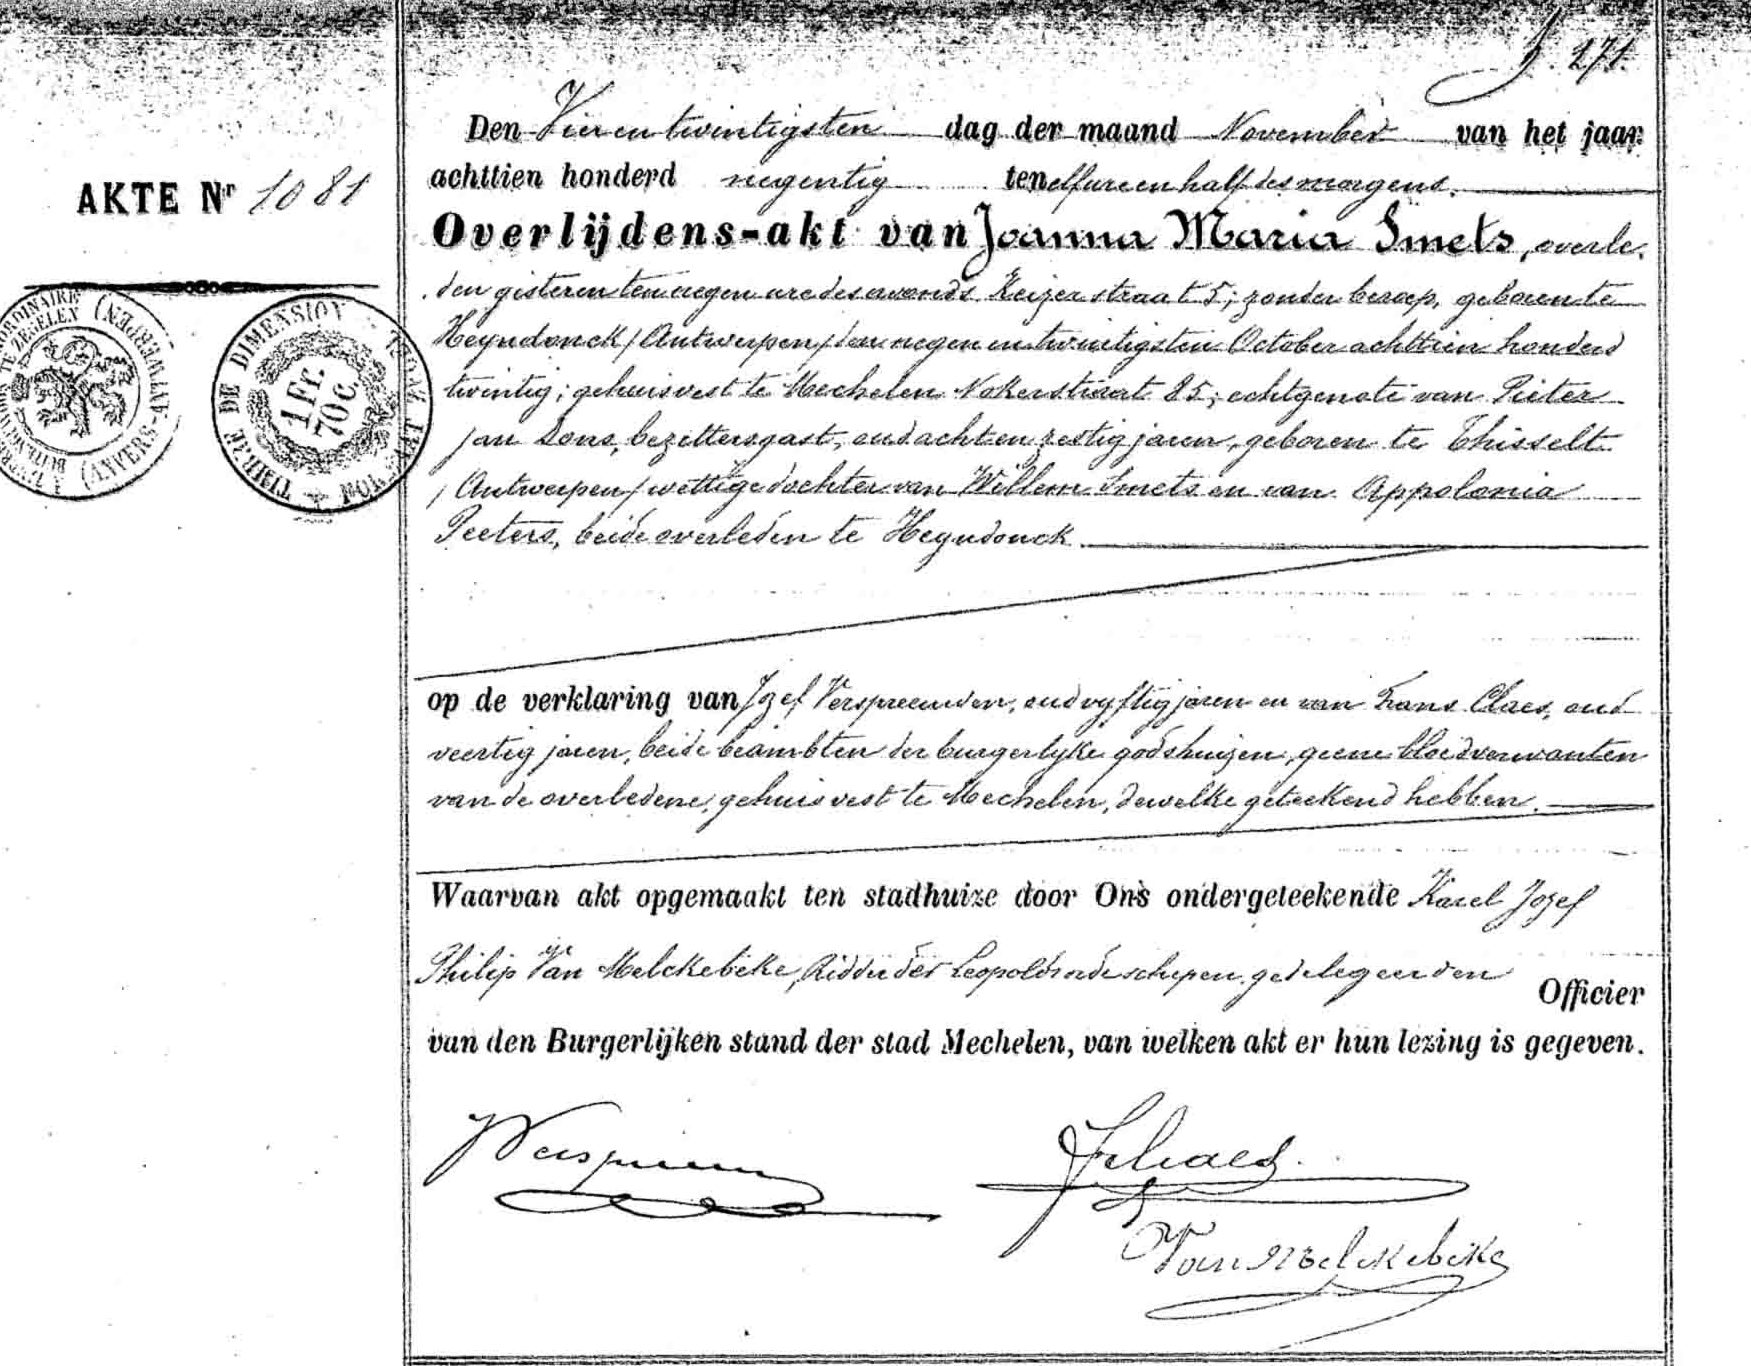 271.
Den Vier en twintigsten dag der maand November van het jaar
AKTE Nr 1081
achttien honderd negentig ten elf ure en half des morgens.
Overlijdens-akt van Joanna Maria Smets, overle-
den gisteren ten negen ure des avonds Keizerstraat 5; zonder beroep, geboren te
Heyndonck /Antwerpen/ den negen en twintigsten October achttien honderd
twintig; gehuisvest te Mechelen Nokerstraat 85; echtgenote van Pieter
Jan Sons, bezettersgast, oud acht en zestig jaren, geboren te Thisselt
/Antwerpen/ wettige dochter van Willem Smets en van Appolonia
Peeters, beide overleden te Heyndonck
TIMBRE DE DIMENSION
1 Fr.
70 c.
(ANVERS-ANTWERPEN)
op de verklaring van Jozef Verspreeuwen, oud vyftig jaren en van Frans Claes, oud
veertig jaren, beide beambten der burgerlyke godshuizen, geene bloedverwanten
van de overledene, gehuisvest te Mechelen, dewelke geteekend hebben.
Waarvan akt opgemaakt ten stadhuize door Ons ondergeteekende Karel Jozef
Philip Van Melckebeke, Ridder der Leopoldsorde schepen gedelegeerden Officier
van den Burgerlijken stand der stad Mechelen, van welken akt er hun lezing is gegeven.
F Claes.
Van Melckebeke